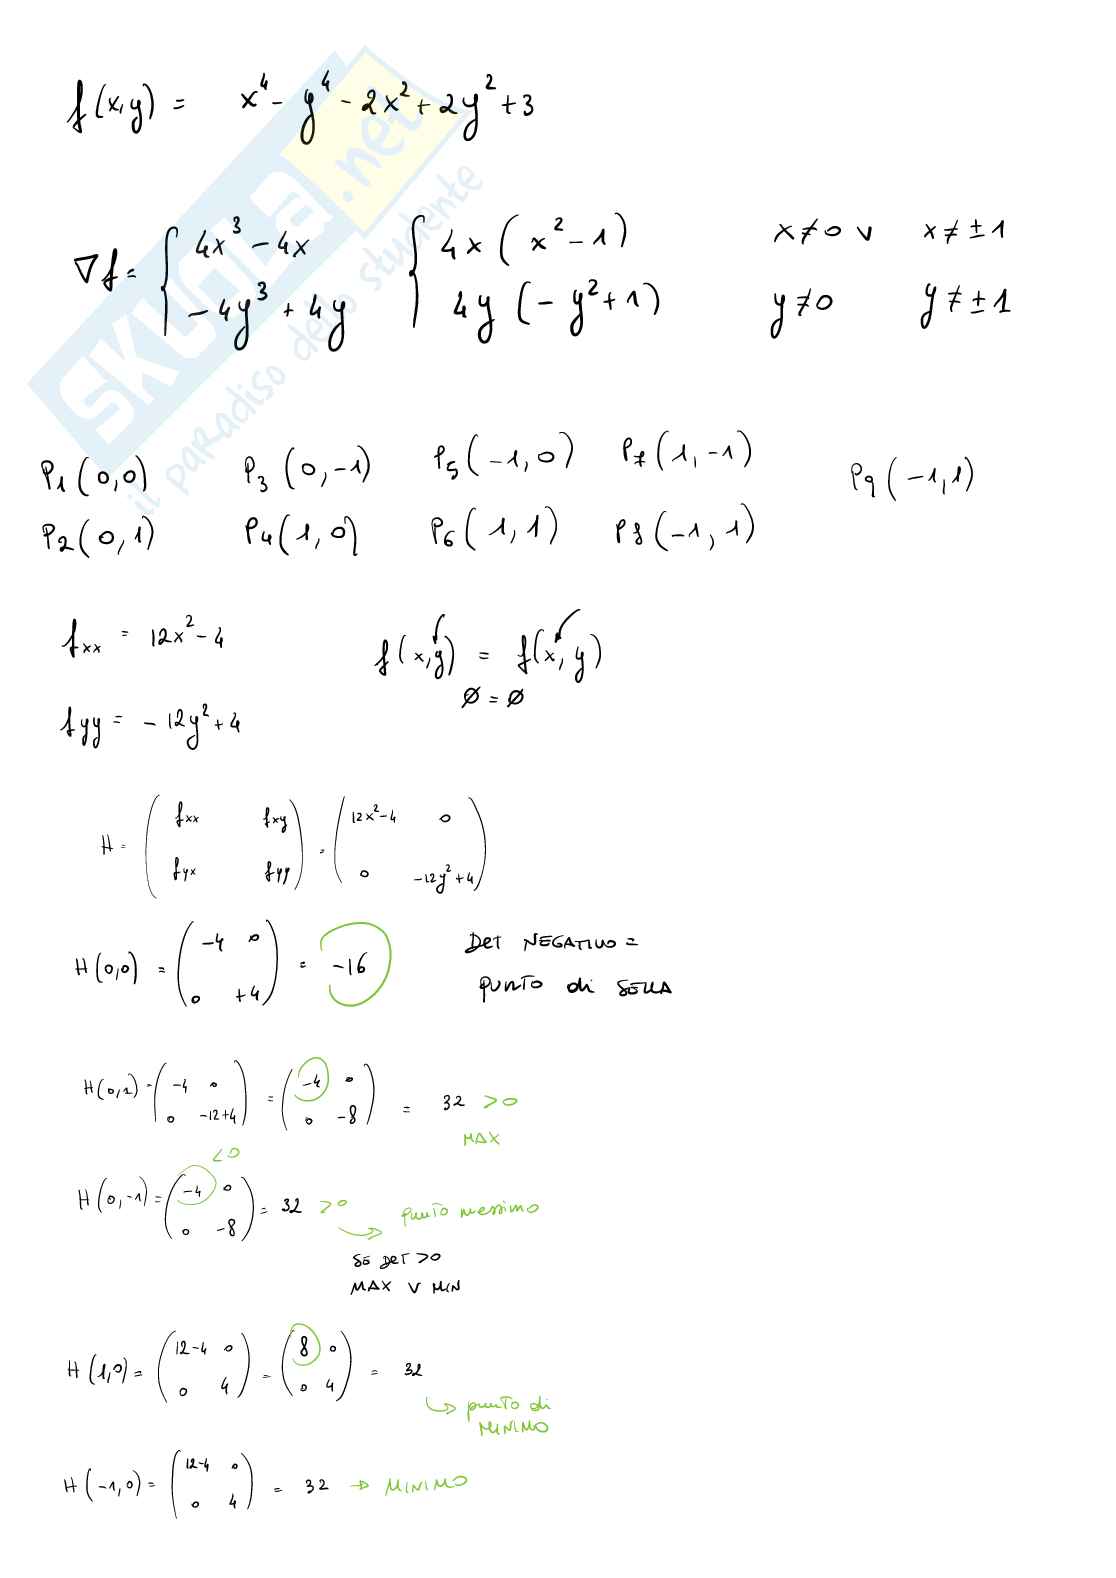 f(x,y) = x⁴ - y⁴ - 2x² + 2y² + 3
SKUOLa.net
il paradiso dello studente
∇f = { 4x³ - 4x { 4x (x² - 1) x ≠ 0 ∨ x ≠ ± 1
- 4y³ + 4y 4y (- y² + 1) y ≠ 0 y ≠ ± 1
P1 (0,0) P3 (0,-1) P5 (-1,0) P7 (1,-1) P9 (-1,1)
P2 (0,1) P4 (1,0) P6 (1,1) P8 (-1,1)
fxx = 12x² - 4 f(x,y) = f(x,y)
∅ = ∅
fyy = - 12y² + 4
H = ( fxx fxy ) = ( 12x²-4 0 )
( fyx fyy ) ( 0 -12y²+4 )
H (0,0) = ( -4 0 ) = -16 DET NEGATIVO =
( 0 +4 ) PUNTO di SELLA
H (0,1) = ( -4 0 ) = ( -4 0 ) = 32 >0
( 0 -12+4 ) ( 0 -8 ) MAX
<0
H (0,-1) = ( -4 0 ) = 32 >0 punto messimo
( 0 -8 )
SE DET >0
MAX ∨ MIN
H (1,0) = ( 12-4 0 ) = ( 8 0 ) = 32
( 0 4 ) ( 0 4 ) punto di
MINIMO
H (-1,0) = ( 12-4 0 ) = 32 → MINIMO
( 0 4 )